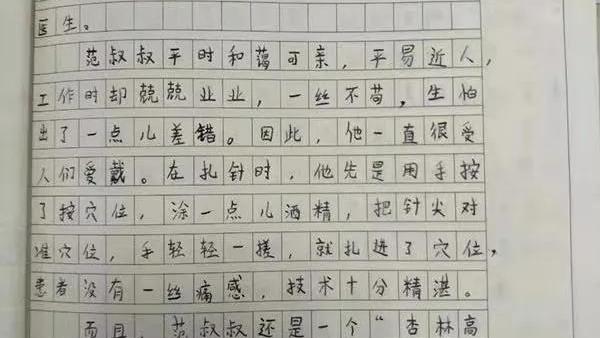 医生。
范叔叔平时和蔼可亲，平易近人，
工作时却兢兢业业，一丝不苟，生怕
出了一点儿差错。因此，他一直很受
人们爱戴。在扎针时，他先是用手按
了按穴位，涂一点儿酒精，把针尖对
准穴位，手轻轻一搓，就扎进了穴位，
患者没有一丝痛感，技术十分精湛。
而且，范叔叔还是一个“杏林高